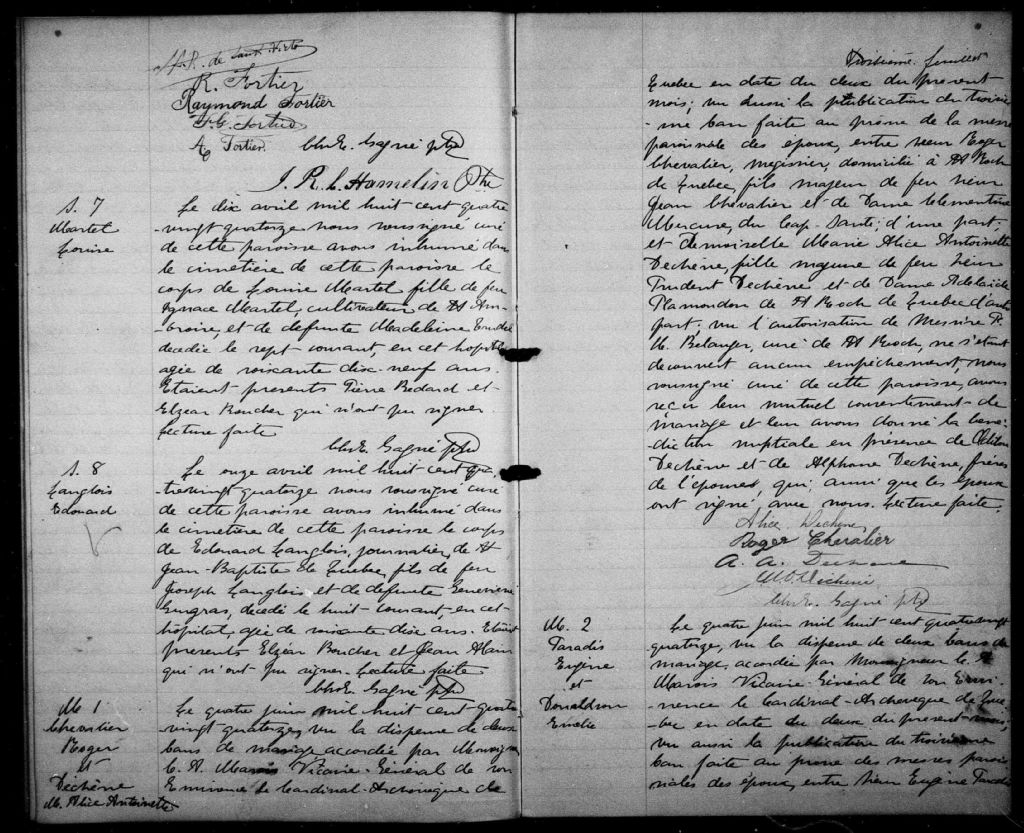 R. Fortier
Raymond Fortier
A. Fortier. Chs E. Gagné ptre
J. R. L. Hamelin Ptre
S. 7
Martel
Louise
Le dix avril mil huit cent quatre
-vingt quatorze nous soussigné curé
de cette paroisse avons inhumé dans
le cimetière de cette paroisse le
corps de Louise Martel fille de feu
Ignace Martel, cultivateur, de St Am-
-broise, et de defunte Madeleine
decedée le sept courant, en cet hopital
agée de soixante dix neuf ans.
Etaient presents Pierre Bedard et
Elzéar Boucher qui n'ont pu signer.
Lecture faite
Chs E. Gagné ptre
S. 8
Langlois
Edouard
Le onze avril mil huit cent qua-
-trevingt quatorze nous soussigné curé
de cette paroisse avons inhumé dans
le cimetière de cette paroisse le corps
de Edouard Langlois, journalier, de St
Jean-Baptiste de Quebec, fils de feu
Joseph Langlois et de defunte Genevieve
Gingras, decedé le huit courant, en cet
hôpital, agé de soixante dix ans. Etaient
presents Elzéar Boucher et Jean Alain
qui n'ont pu signer. Lecture faite
Chs E. Gagné ptre
M. 1
Chevalier
Roger
et
Dechêne
M. Alice Antoinette
Le quatre juin mil huit cent quatre
vingt quatorze, vu la dispense de deux
bans de mariage accordée par Monseigneur
C. A. Marois Vicaire-Général de son
Eminence le Cardinal-Archeveque de
Troisième feuillet
Quebec en date du deux du present
mois; vu aussi la publication du troisiè-
-me ban faite au prône de la messe
paroissiale des époux, entre sieur Roger
Chevalier, megissier, domicilié à St Roch
de Quebec, fils majeur de feu sieur
Jean Chevalier et de Dame Clementine
Mercure, du Cap-Santé; d'une part.
et demoiselle Marie Alice Antoinette
Dechêne, fille majeure de feu sieur
Prudent Dechêne et de Dame Adelaide
Plamondon de St Roch de Quebec d'autre
part. vu l'autorisation de Messire F.
H. Belanger, curé de St Roch, ne s'étant
decouvert aucun empêchement, nous
soussigné curé de cette paroisse, avons
reçu leur mutuel consentement de
mariage et leur avons donné la bene-
-diction nuptiale en présence de
Dechêne et de Alphonse Dechêne, frères
de l'épouse, qui, ainsi que les époux
ont signé avec nous. Lecture faite.
Alice Dechêne
Roger Chevalier
A. A. Dechene
Dechêne
Chs E. Gagné ptre
M. 2
Paradis
Eugène
et
Donaldson
Emélie
Le quatre juin mil huit cent quatrevingt
quatorze, vu la dispense de deux bans de
mariage, accordée par Monseigneur C. A.
Marois Vicaire-Général de son Emi-
-nence le Cardinal-Archeveque de Que-
bec en date du deux du present mois,
vu aussi la publication du troisieme
ban faite au prone des messes parois-
siales des époux, entre sieur Eugène Paradis